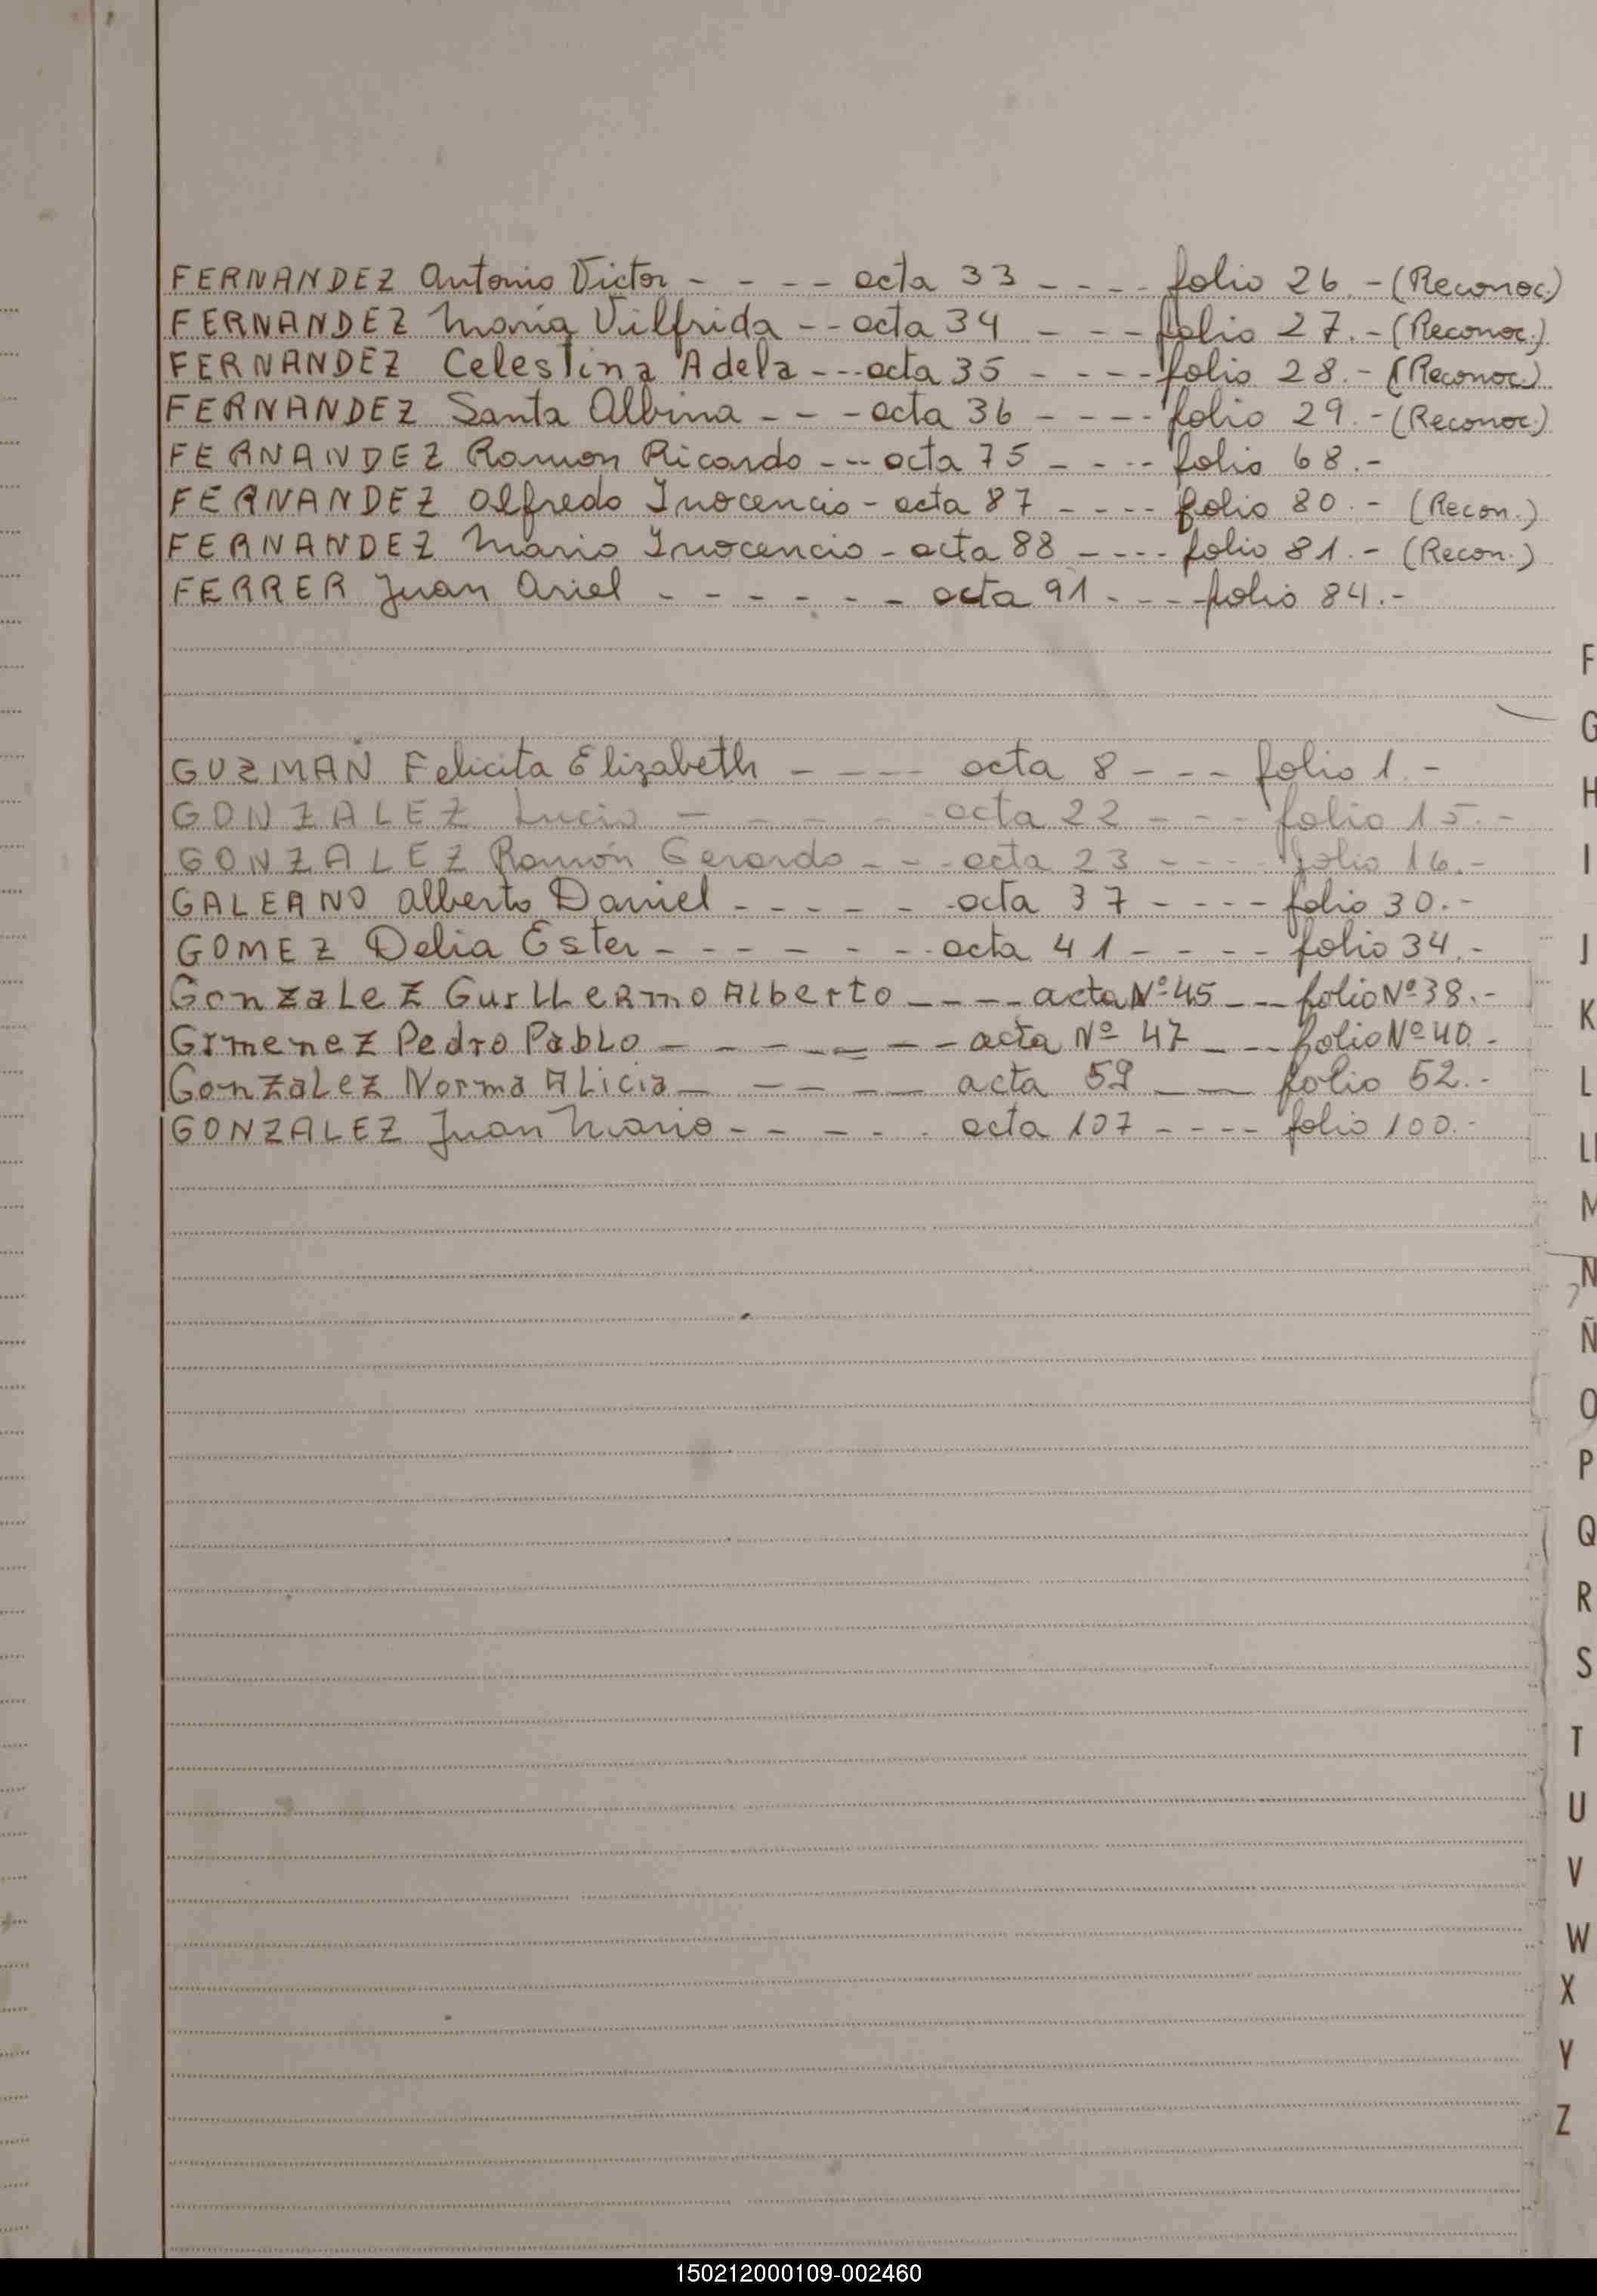 FERNANDEZ Antonio Victor - - - - acta 33 - - - - folio 26.- (Reconoc.)
FERNANDEZ María Vilfrida - - acta 34 - - - folio 27.- (Reconoc.)
FERNANDEZ Celestina Adela - - - acta 35 - - - - folio 28.- (Reconoc.)
FERNANDEZ Santa Albina - - - acta 36 - - - - folio 29.- (Reconoc.)
FERNANDEZ Ramon Ricardo - - - acta 75 - - - - folio 68.-
FERNANDEZ Alfredo Inocencio - acta 87 - - - - folio 80.- (Recon.)
FERNANDEZ Mario Inocencio - acta 88 - - - - folio 81.- (Recon.)
FERRER Juan Ariel - - - - - - - acta 91 - - - - folio 84.-
F
G
GUZMAN Felicita Elizabeth - - - - acta 8 - - - folio 1.-
H
GONZALEZ Lucio - - - - - - acta 22 - - - folio 15.-
GONZALEZ Ramón Gerardo - - - acta 23 - - - - folio 16.-
I
GALEANO Alberto Daniel - - - - - - acta 37 - - - - folio 30.-
GOMEZ Delia Ester - - - - - - - acta 41 - - - - folio 34.-
J
GonzaLeZ GuiLLeRmo ALberto - - - - acta Nº 45 - - folio Nº 38.-
K
Gimenez Pedro PabLo - - - - - - - acta Nº 47 - - - folio Nº 40.-
GonzaLez Norma ALicia - - - - - acta 59 - - folio 52.-
L
GONZALEZ Juan Mario - - - - - - acta 107 - - - - folio 100.-
Ll
M
N
Ñ
O
P
Q
R
S
T
U
V
W
X
Y
Z
150212000109-002460